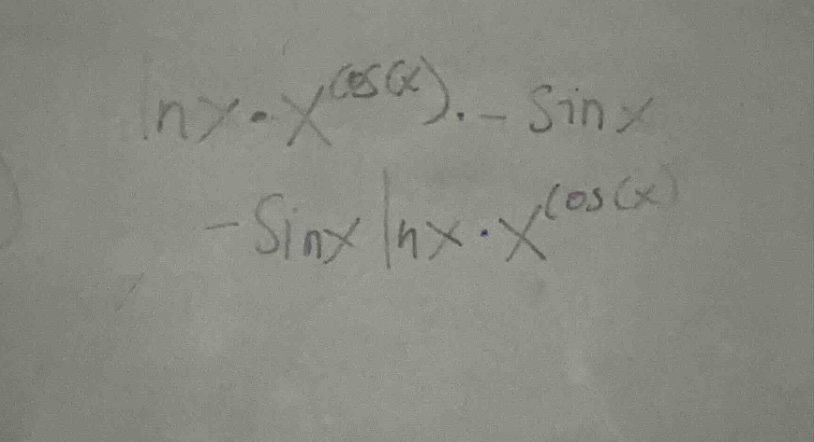 ln x · x^cos(x) · - sin x
- Sin x ln x · x^cos(x)